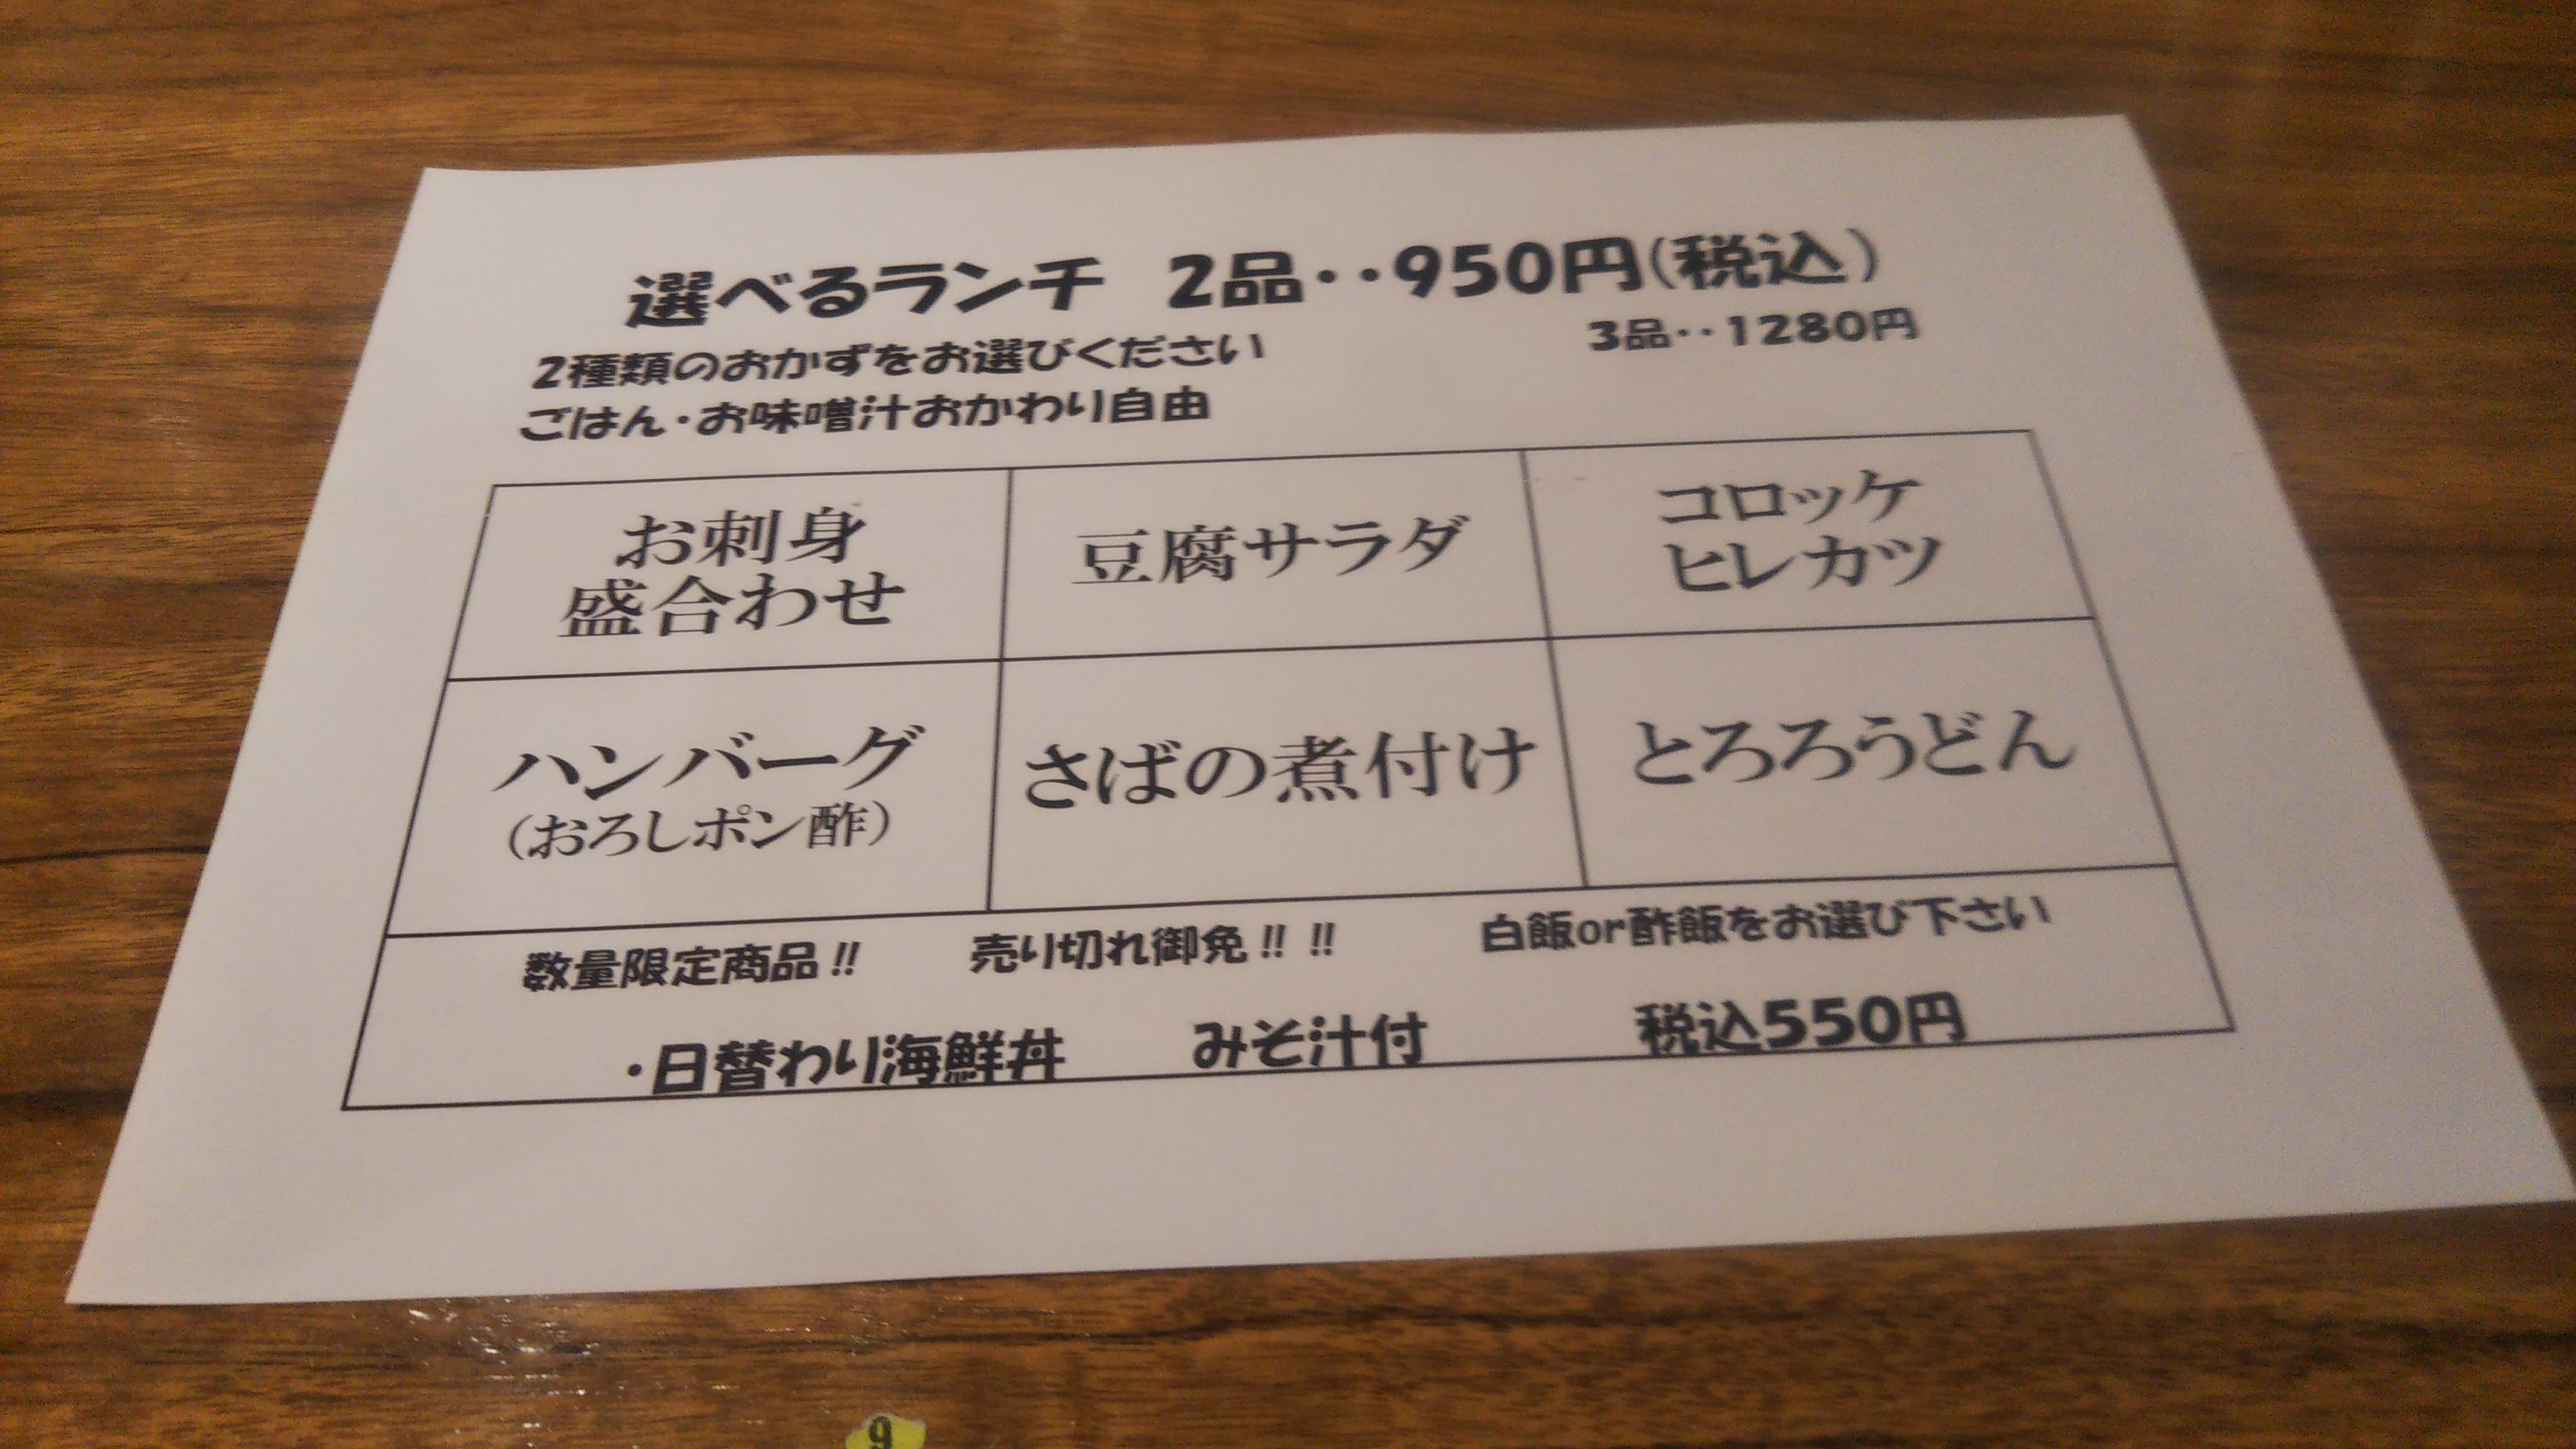 選べるランチ 2品‥950円(税込)
2種類のおかずをお選びください 3品‥1280円
ごはん・お味噌汁おかわり自由
お刺身
盛合わせ
豆腐サラダ
コロッケ
ヒレカツ
ハンバーグ
(おろしポン酢)
さばの煮付け
とろろうどん
数量限定商品!! 売り切れ御免!! !! 白飯or酢飯をお選び下さい
・日替わり海鮮丼 みそ汁付 税込550円
9